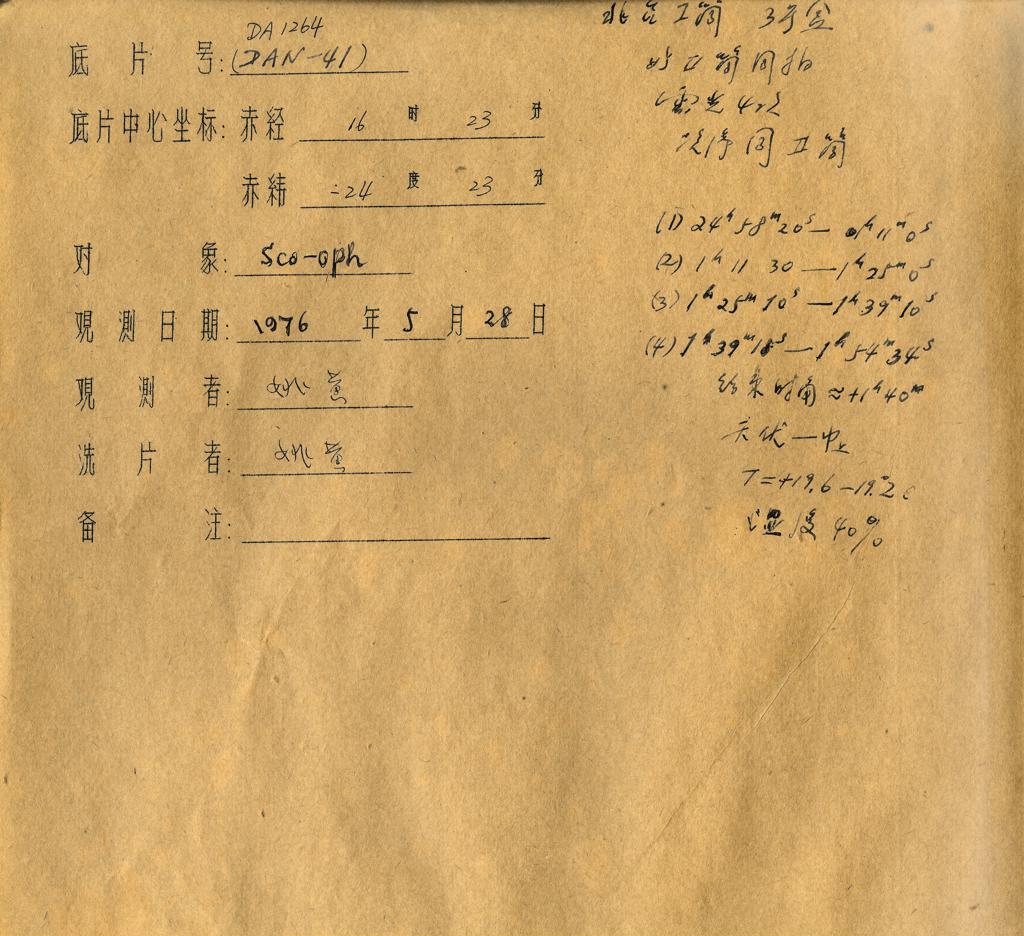 DA 1264
底片号:(DAN-41)
底片中心坐标:赤经 16 时 23 分
赤纬 -24 度 23 分
对象:Sco-oph
观测日期:1976 年 5 月 28 日
观测者:姚
洗片者:姚
备注:
筒 3号盒
筒同拍
露光4次
次序同 筒
(1) 24ʰ58ᵐ20ˢ — 1ʰ11ᵐ0ˢ
(2) 1ʰ 11 30 — 1ʰ25ᵐ0ˢ
(3) 1ʰ25ᵐ10ˢ — 1ʰ39ᵐ10ˢ
(4) 1ʰ39ᵐ18ˢ — 1ʰ54ᵐ34ˢ
结束时角≈+1ʰ40ᵐ
天优—中上
T=+19.6—19.2c
湿度 40%